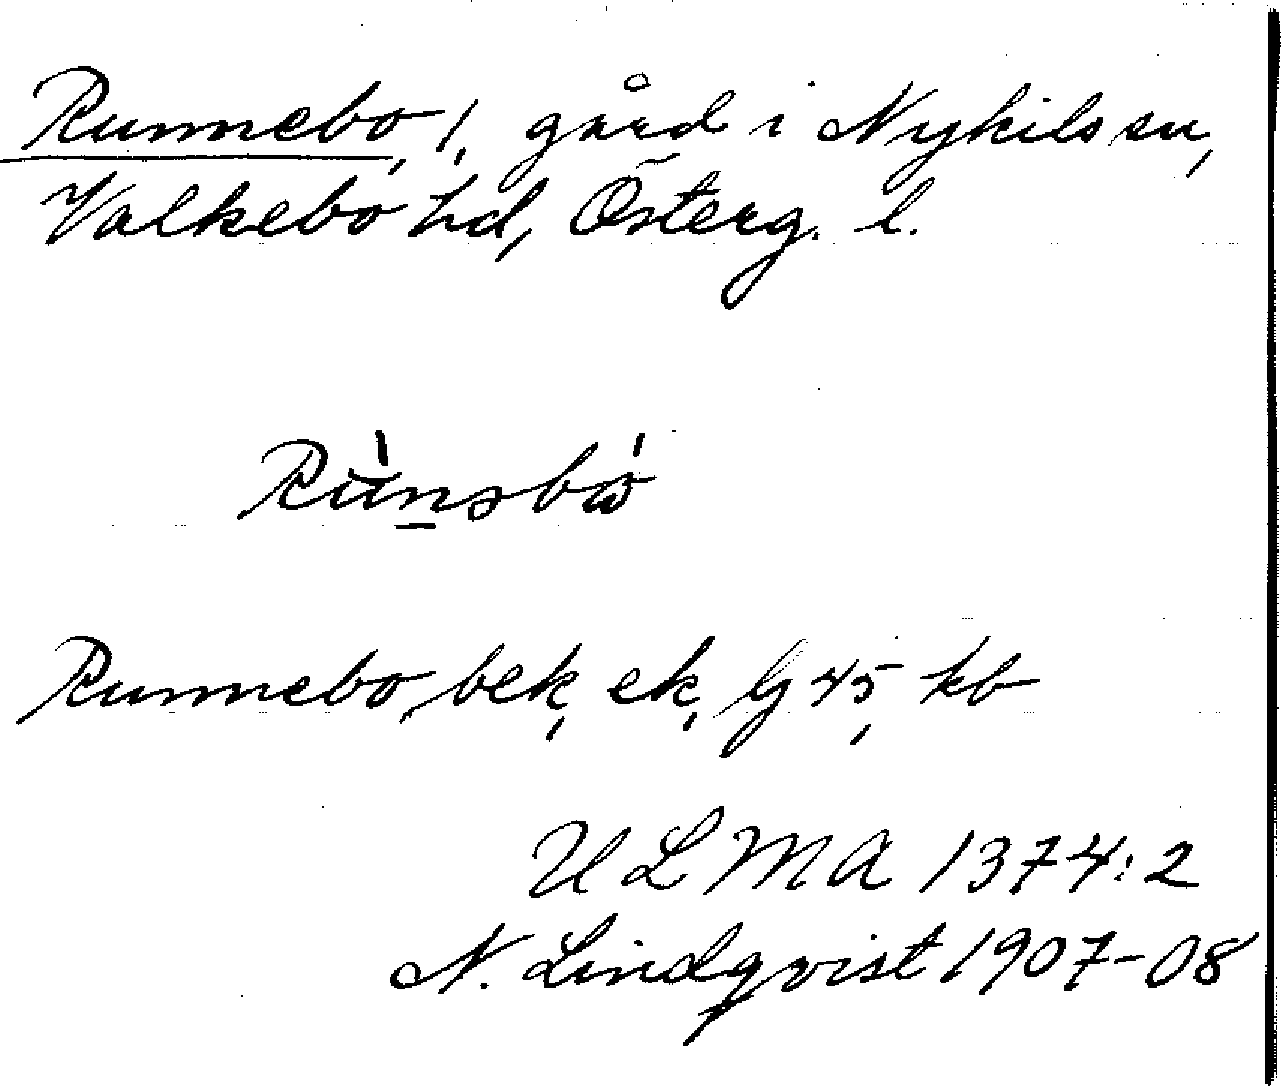 Runnebo, 1, gård i Nykils sn,
Valkebo hd, Österg. l.
Runnebo, bek, ek, Gj 45, kb
ULMA 1374:2
N. Lindqvist 1907-08